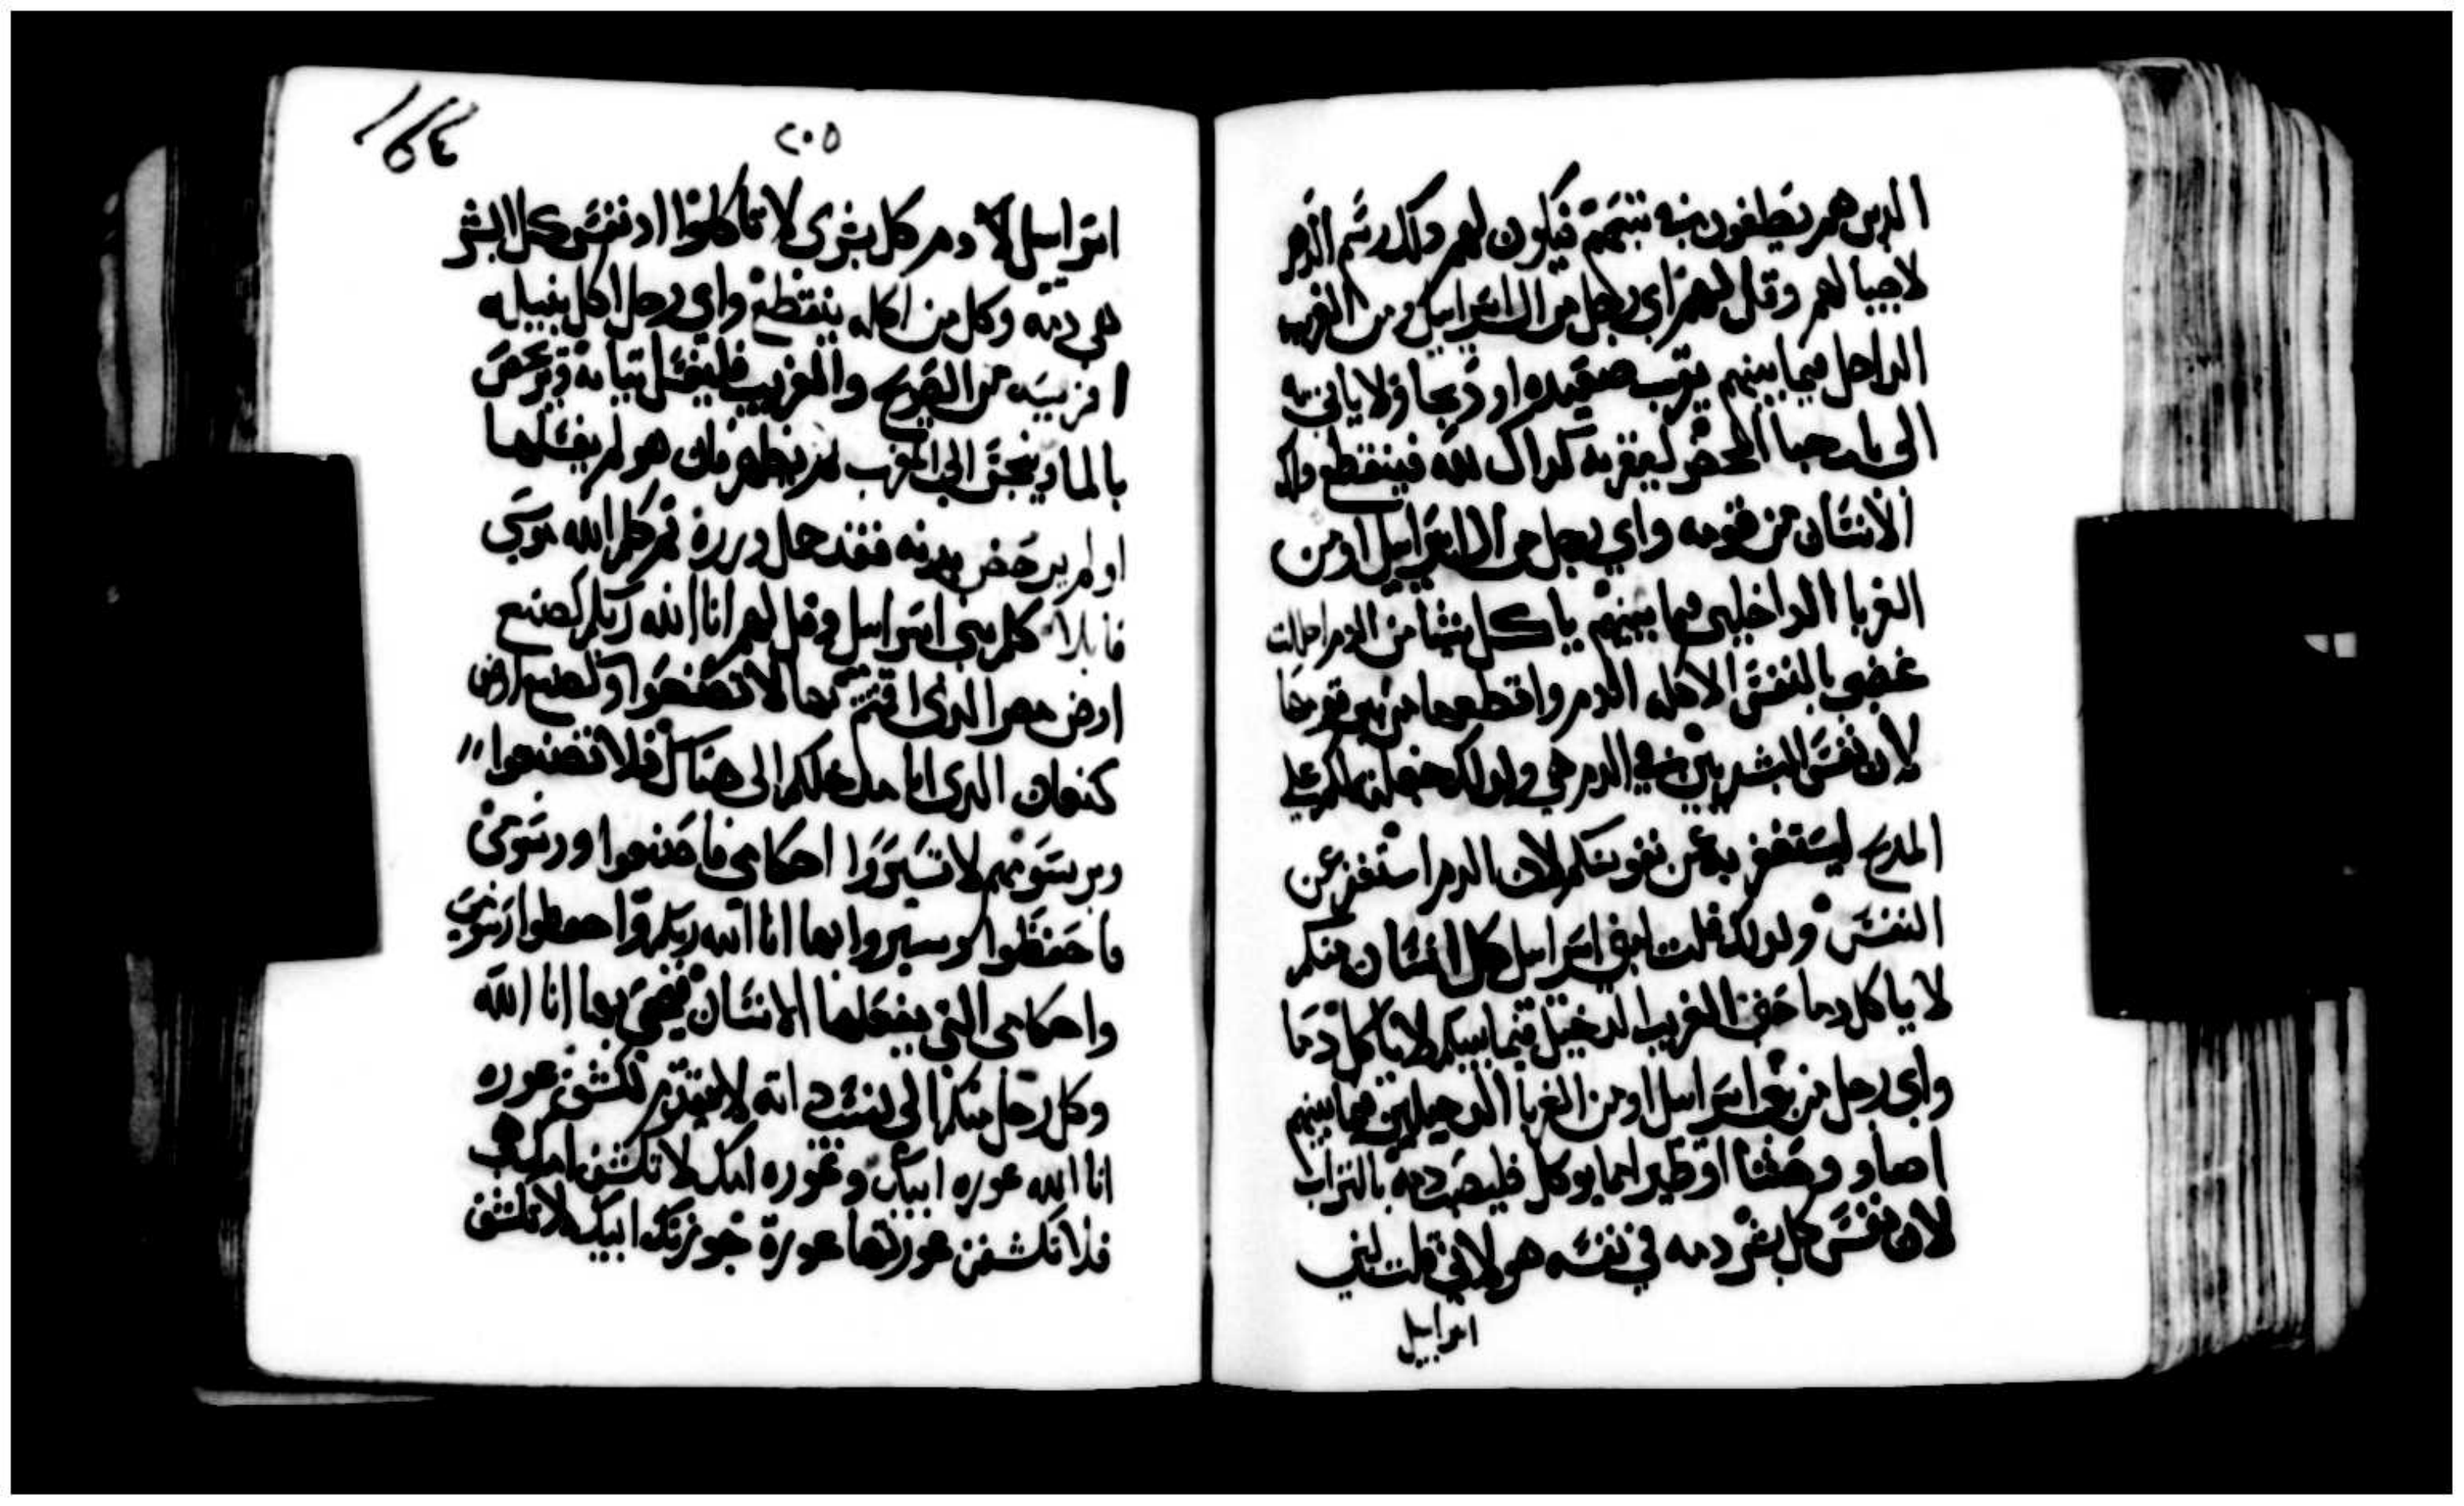 الدين هم يطغون بنيه بتبعهم فيكون لهم دلك رسم الدهر
لاجيالهم وقل لهم اي رجل من ال اسراييل ومن الغريب
الداخل فيما بينهم يقرب صعيده او دبحا ولا ياتي به
الى باب خبا المحضر ليقربه كداك لله فينقطع دلك
الانسان من قومه واي رجل من ال اسراييل او من
الغربا الداخلين فيما بينهم ياكل شيا من الدم احللت
غضبي بالنفس الاكله الدم واقطعها من بين قومها
لان نفس البشريين في الدم هي ولدلك جعلته لكم على
المدبح ليستغفر به عن نفوسكم لان الدم استغفر عن
النفس ولدلك قلت لبني اسراييل كل انسان منكم
لا ياكل دما حتى الغريب الدخيل فيما بينكم لا ياكل دما
واي رجل من بني اسراييل او من الغربا الدخيلين فيما بينهم
اصاد وحشا او طيرا مما يوكل فليصب دمه بالتراب
لان نفس كل بشر دمه في نفسه هو لاني قلت لبني
اسراييل
٢٠٥
١٦٤
اسراييل لا دم كل بشري لا تاكلوا اد نفس كل البشر
هي دمه وكل من اكله ينقطع واي رجل اكل بنبيله
او فريسه من الصريح والغريب فليغسل تيابه ويرحض
بالما وينجس الى المغرب تم يطهر فان هو لم يغسلها
او لم يرحض بدنه فقد حمل وزره تم كلم الله موسى
قايلا كلم بني اسراييل وقل لهم انا الله ربكم كصنيع
ارض مصر الدي اقمتم بها لا تصنعوا وكصنيع ارض
كنعان الدي انا مدخلكم الى هناك فلا تصنعوا
وبرسومهم لا تسيروا احكامي فاصنعوا ورسومي
فاحفظوا وسيروا بها انا الله ربكم واحفظوا رسومي
واحكامي التي يفعلها الانسان فيحيى بها انا الله
وكل رجل منكم الى نسيب داته لا يتقدم لكشف عوره
انا الله عوره ابيك وعوره امك لا تكشف امك هي
فلا تكشفن عورتها عورة زوجة ابيك لا تكشف